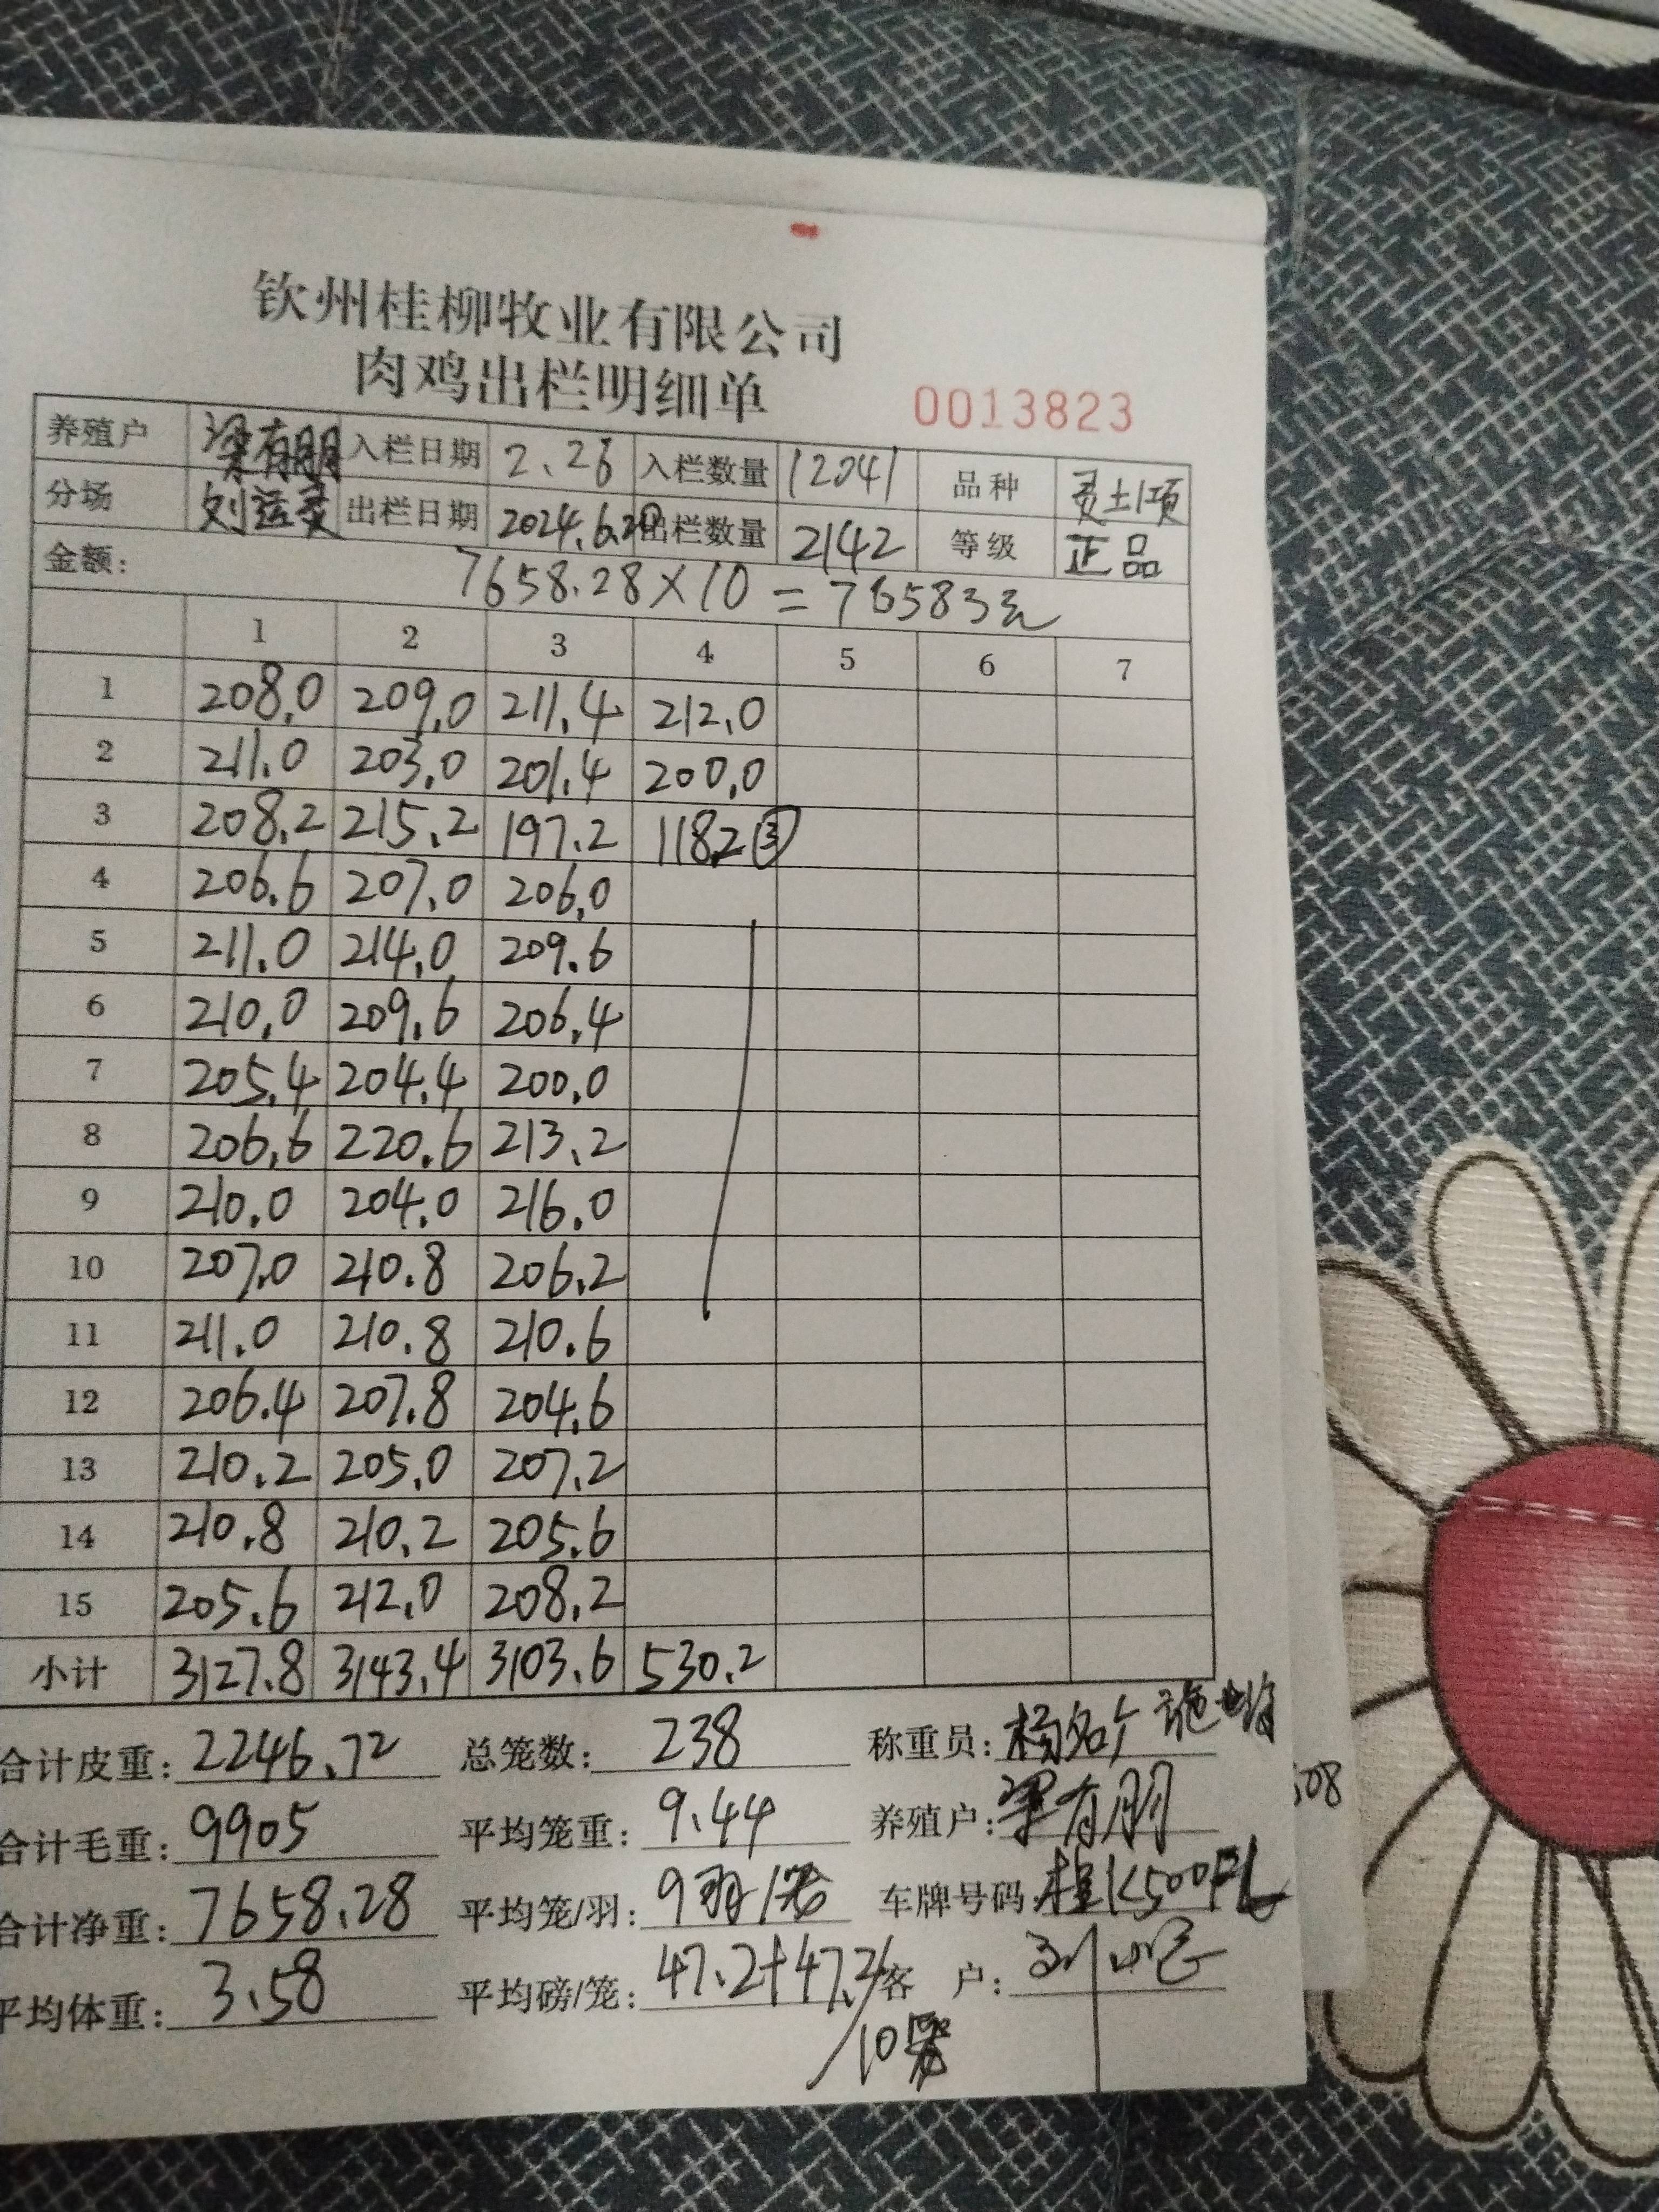 钦州桂柳牧业有限公司
肉鸡出栏明细单 0013823
养殖户 梁有朋 入栏日期 2.26 入栏数量 12041 品种 灵土项
分场 刘运 出栏日期 2024.6.20 出栏数量 2142 等级 正品
金额: 7658.28×10=76583元
1 2 3 4 5 6 7
1 208.0 209.0 211.4 212.0
2 211.0 203.0 201.4 200.0
3 208.2 215.2 197.2 118.2 ③
4 206.6 207.0 206.0
5 211.0 214.0 209.6
6 210.0 209.6 206.4
7 205.4 204.4 200.0
8 206.6 220.6 213.2
9 210.0 204.0 216.0
10 207.0 210.8 206.2
11 211.0 210.8 210.6
12 206.4 207.8 204.6
13 210.2 205.0 207.2
14 210.8 210.2 205.6
15 205.6 212.0 208.2
小计 3127.8 3143.4 3103.6 530.2
合计皮重: 2246.72 总笼数: 238 称重员: 杨名广
合计毛重: 9905 平均笼重: 9.44 养殖户: 梁有朋
508
合计净重: 7658.28 平均笼/羽: 9羽/笼 车牌号码: 桂K500
平均体重: 3.58 平均磅/笼: 47.2+47.2 客 户: 刘
/10